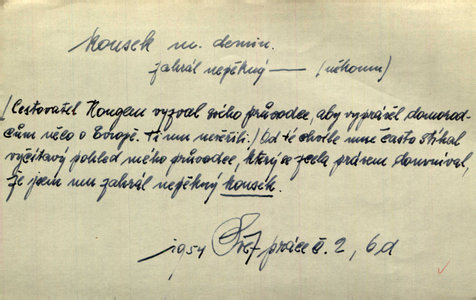 kousek m. demin.
zahrál nepěkný — (někomu)
(Cestovatel Kongem vyzval svého průvodce, aby vyprávěl domorod-
cům něco o Evropě. Ti mu nevěřili.) Od té chvíle mne často stíhal
vyčítavý pohled mého průvodce, který se zcela právem domníval,
že jsem mu zahrál nepěkný kousek.
1954 Svět práce č. 2, 6d